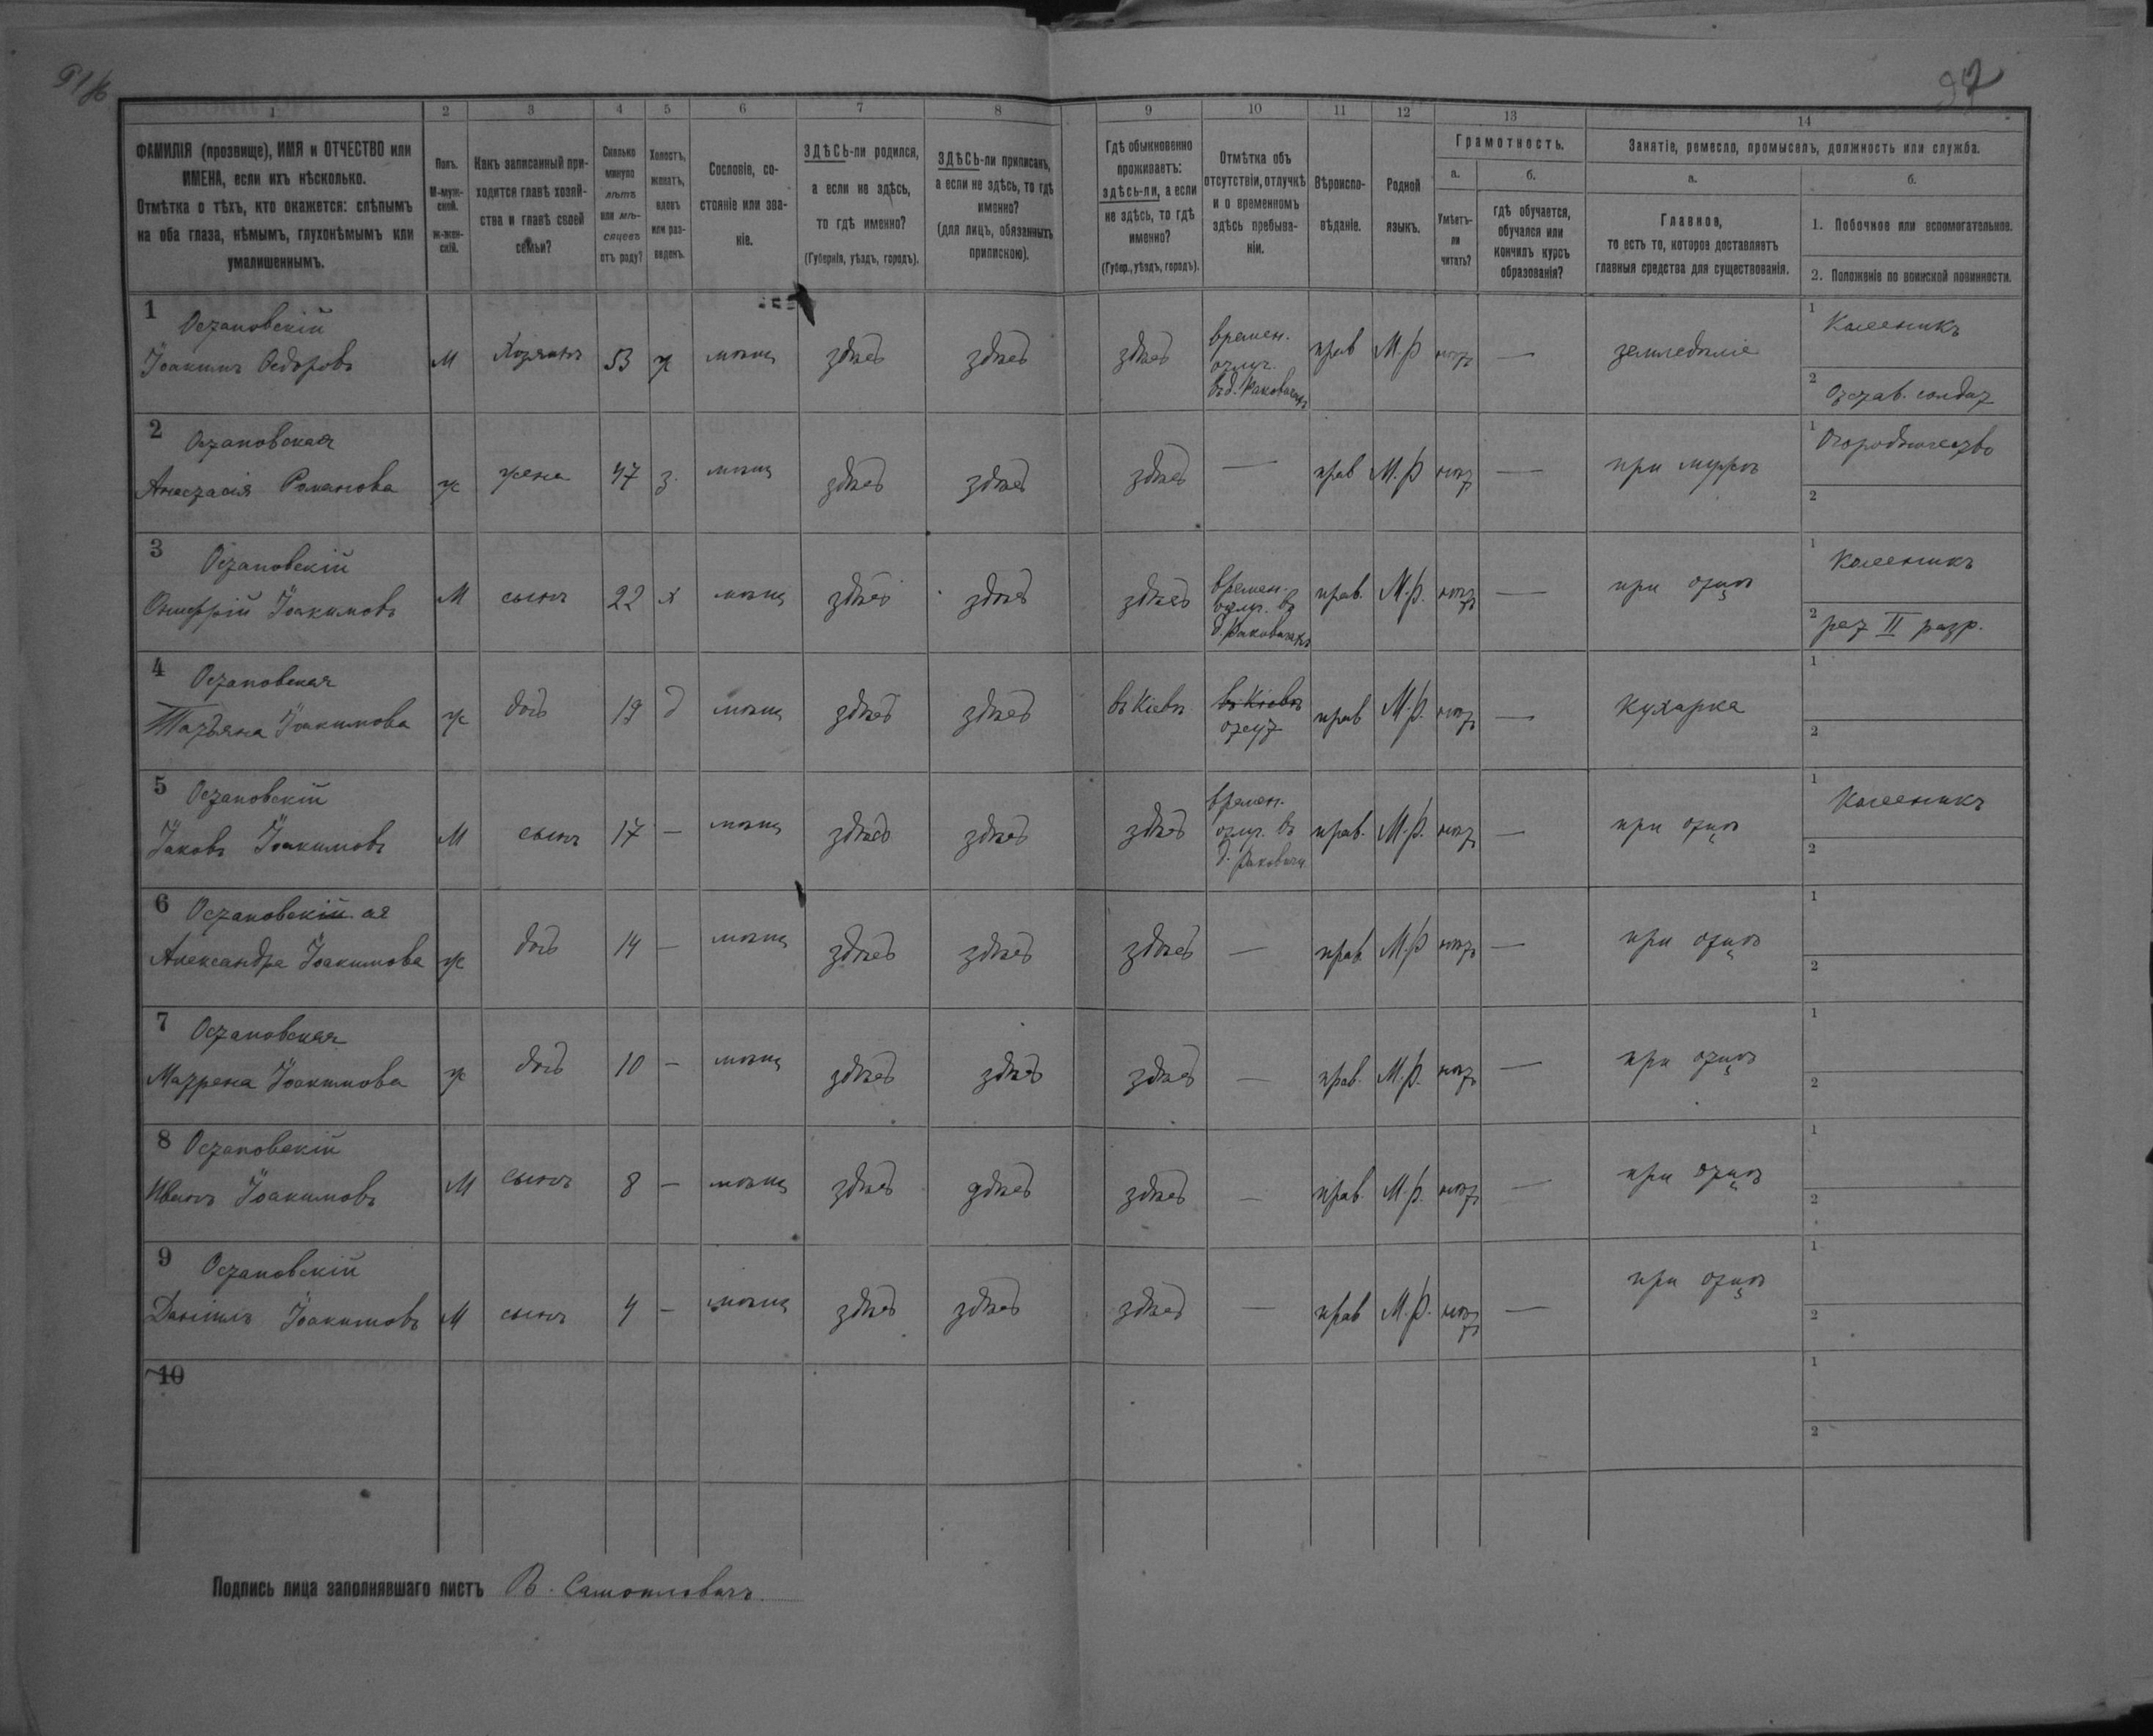 97
1 2 3 4 5 6 7 8 9 10 11 12 13 14
ФАМИЛІЯ (прозвище), ИМЯ и ОТЧЕСТВО или
ИМЕНА, если ихъ нѣсколько.
Отмѣтка о тѣхъ, кто окажется: слѣпымъ
на оба глаза, нѣмымъ, глухонѣмымъ или
умалишеннымъ.
Полъ.
М-муж-
ской.
ж-жен-
скій.
Какъ записанный при-
ходится главѣ хозяй-
ства и главѣ своей
семьи?
Сколько
минуло
лѣтъ
или мѣ-
сяцевъ
отъ роду?
Холостъ,
женатъ,
вдовъ
или раз-
веденъ.
Сословіе, со-
стояніе или зва-
ніе.
ЗДѢСЬ-ли родился,
а если не здѣсь,
то гдѣ именно?
(Губернія, уѣздъ, городъ).
ЗДѢСЬ-ли приписанъ,
а если не здѣсь, то гдѣ
именно?
(для лицъ, обязанныхъ
припискою).
Гдѣ обыкновенно
проживаетъ:
здѣсь-ли, а если
не здѣсь, то гдѣ
именно?
(Губер., уѣздъ, городъ).
Отмѣтка объ
отсутствіи, отлучкѣ
и о временномъ
здѣсь пребыва-
ніи.
Вѣроиспо-
вѣданіе.
Родной
языкъ.
Грамотность.
а.
Умѣетъ-
ли
читать?
б.
гдѣ обучается,
обучался или
кончилъ курсъ
образованія?
Занятіе, ремесло, промыселъ, должность или служба.
а.
Главное,
то есть то, которое доставляетъ
главныя средства для существованія.
б.
1. Побочное или вспомогательное.
2. Положеніе по воинской повинности.
1
Остановскій
Іоакимъ Ѳедоровъ
М Хозяинъ 53 ж мѣщ здѣсь здѣсь здѣсь
времен.
отлуч.
въ д. Раковичахъ
прав М.Р нѣтъ — земледѣліе
1 Колесникъ
2 Отстав. солдат
2
Остановская
Анастасія Романова
ж жена 47 з. мѣщ здѣсь здѣсь здѣсь — прав М.Р нѣтъ — при мужѣ
1 Огородничество
2
3
Остановскій
Онуфрій Іоакимовъ
М сынъ 22 х мѣщ здѣсь здѣсь здѣсь
времен.
отлуч. въ
д. Раковичахъ
прав. М.Р. нѣтъ — при отцѣ
1 Колесникъ
2 рат II разр.
4
Остановская
Татьяна Іоакимова
ж дочь 19 д мѣщ здѣсь здѣсь въ Кіевѣ
въ Кіевѣ
отсут
прав М.Р. нѣтъ — Кухарка
1
2
5
Остановскій
Іаковъ Іоакимовъ
М сынъ 17 — мѣщ здѣсь здѣсь здѣсь
времен.
отлуч. въ
д. Раковичи
прав. М.Р. нѣтъ — при отцѣ
1 Колесникъ
2
6
Остановскій ая
Александра Іоакимова
ж дочь 14 — мѣщ здѣсь здѣсь здѣсь — прав М.Р нѣтъ — при отцѣ
1
2
7
Остановская
Матрена Іоакимова
ж дочь 10 — мѣщ здѣсь здѣсь здѣсь — прав. М.Р. нѣтъ — при отцѣ
1
2
8
Остановскій
Иванъ Іоакимовъ
М сынъ 8 — мѣщ здѣсь здѣсь здѣсь — прав. М.Р. нѣтъ — при отцѣ
1
2
9
Остановскій
Даніилъ Іоакимовъ
М сынъ 4 — мѣщ здѣсь здѣсь здѣсь — прав М.Р. нѣтъ — при отцѣ
1
2
10
1
2
Подпись лица заполнявшаго листъ В. Самойловичъ.